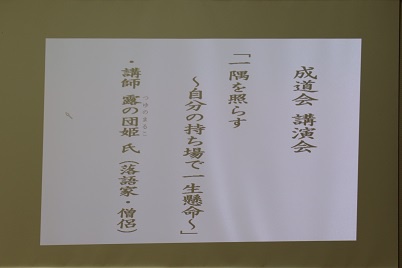 成道会 講演会
「一隅を照らす
～自分の持ち場で一生懸命～」
・講師 露の団姫 氏（落語家・僧侶）
つゆのまるこ